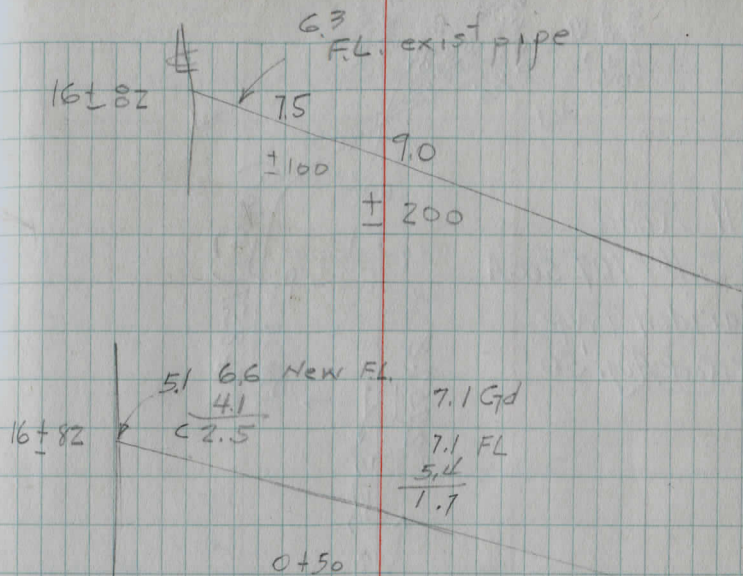 6.3
F.L. exist pipe
16±82
7.5
±100
9.0
± 200
5.1 6.6 New F.L.
4.1
C 2.5
16±82
7.1 Gd
7.1 FL
5.4
1.7
0+50